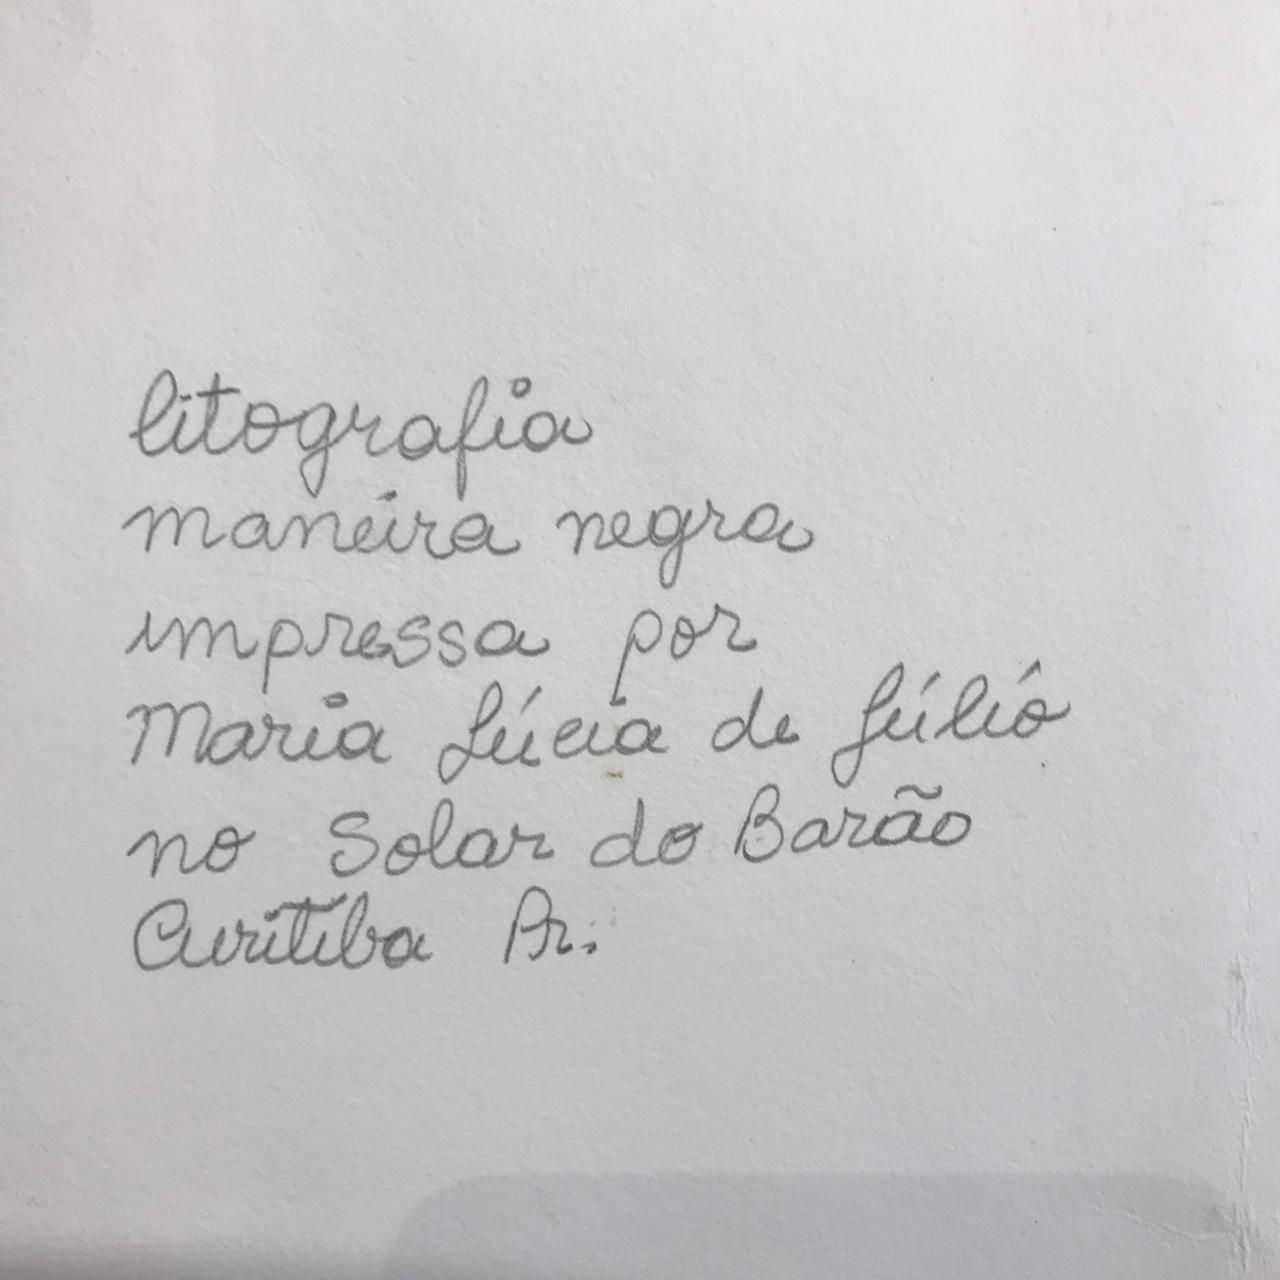 litografia
maneira negra
impressa por
Maria Lúcia de Júlió
no Solar do Barão
Curitiba Pr.